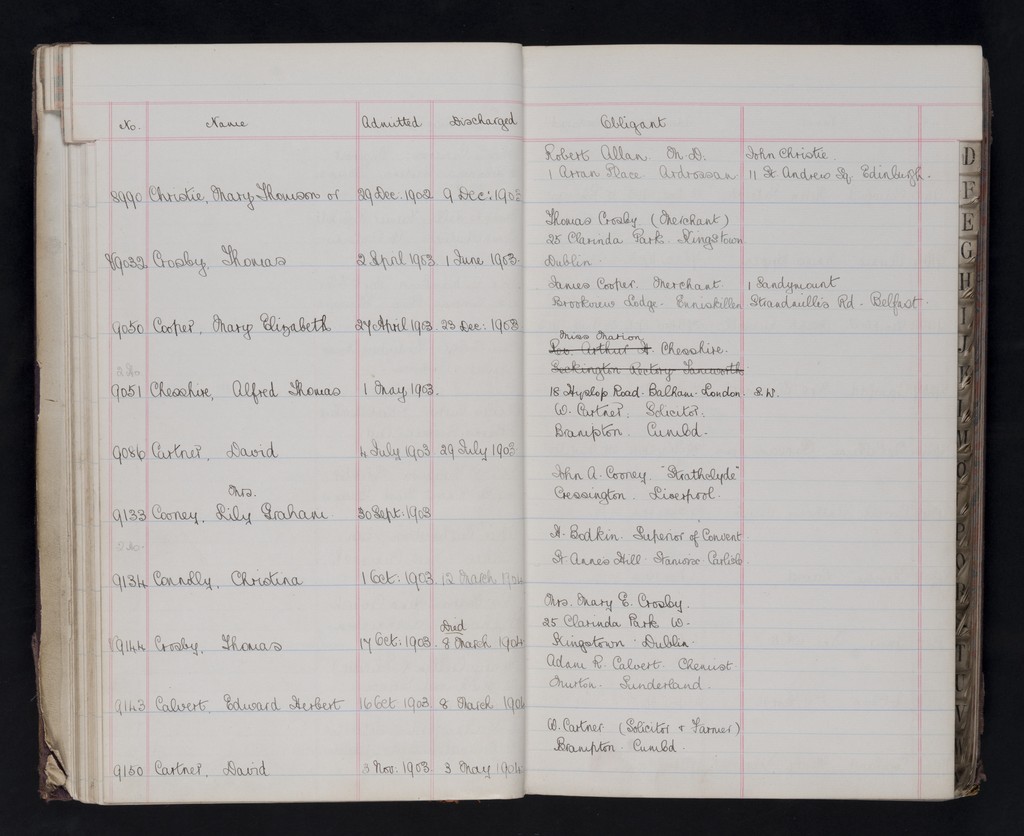 No. Name Admitted Discharged Obligant
Robert Allan M.D. John Christie.
1 Arran Place Ardrossan 11 St Andrew Sq. Edinburgh.
8990 Christie, Mary Thomson or 29 Dec. 1902 9 Dec: 1903
Thomas Crosby (Merchant)
25 Clarinda Park Kingstown
9032 Crosby, Thomas 2 April 1903 1 June 1903. Dublin.
James Cooper. Merchant 1 Sandymount
Brookview Lodge. Enniskillen Stranmillis Rd. Belfast.
9050 Cooper, Mary Elizabeth 27 April 1903 23 Dec: 1903
Miss Marion
Rev. Arthur H. Chesshire.
Seckington Rectory Tamworth
9051 Chesshire, Alfred Thomas 1 May 1903. 18 Hyslop Road. Balham. London. S.W.
W. Cartner, Solicitor:
Brampton. Cumbd.
9086 Cartner, David 4 July 1903 29 July 1903
John A. Cooney. "Strathclyde"
Mrs. Cressington. Liverpool.
9133 Cooney, Lily Graham 30 Sept. 1903
H. Bodkin. Superior of Convent
St Annes Hill. Stanwix Carlisle
9134 Connolly, Christina 1 Oct: 1903. 12 March 1904
Mrs. Mary E. Crosby.
Died 25 Clarinda Park W.
9144 Crosby, Thomas 17 Oct: 1903. 8 March 1904 Kingstown. Dublin.
Adam R. Calvert. Chemist
Murton. Sunderland.
9143 Calvert, Edward Herbert 16 Oct 1903. 8 March 1904
W. Cartner (Solicitor & Farmer)
Brampton. Cumbd.
9150 Cartner, David 3 Nov: 1903. 3 May 1904
D
F
E
G
H
I
J
L
M
T